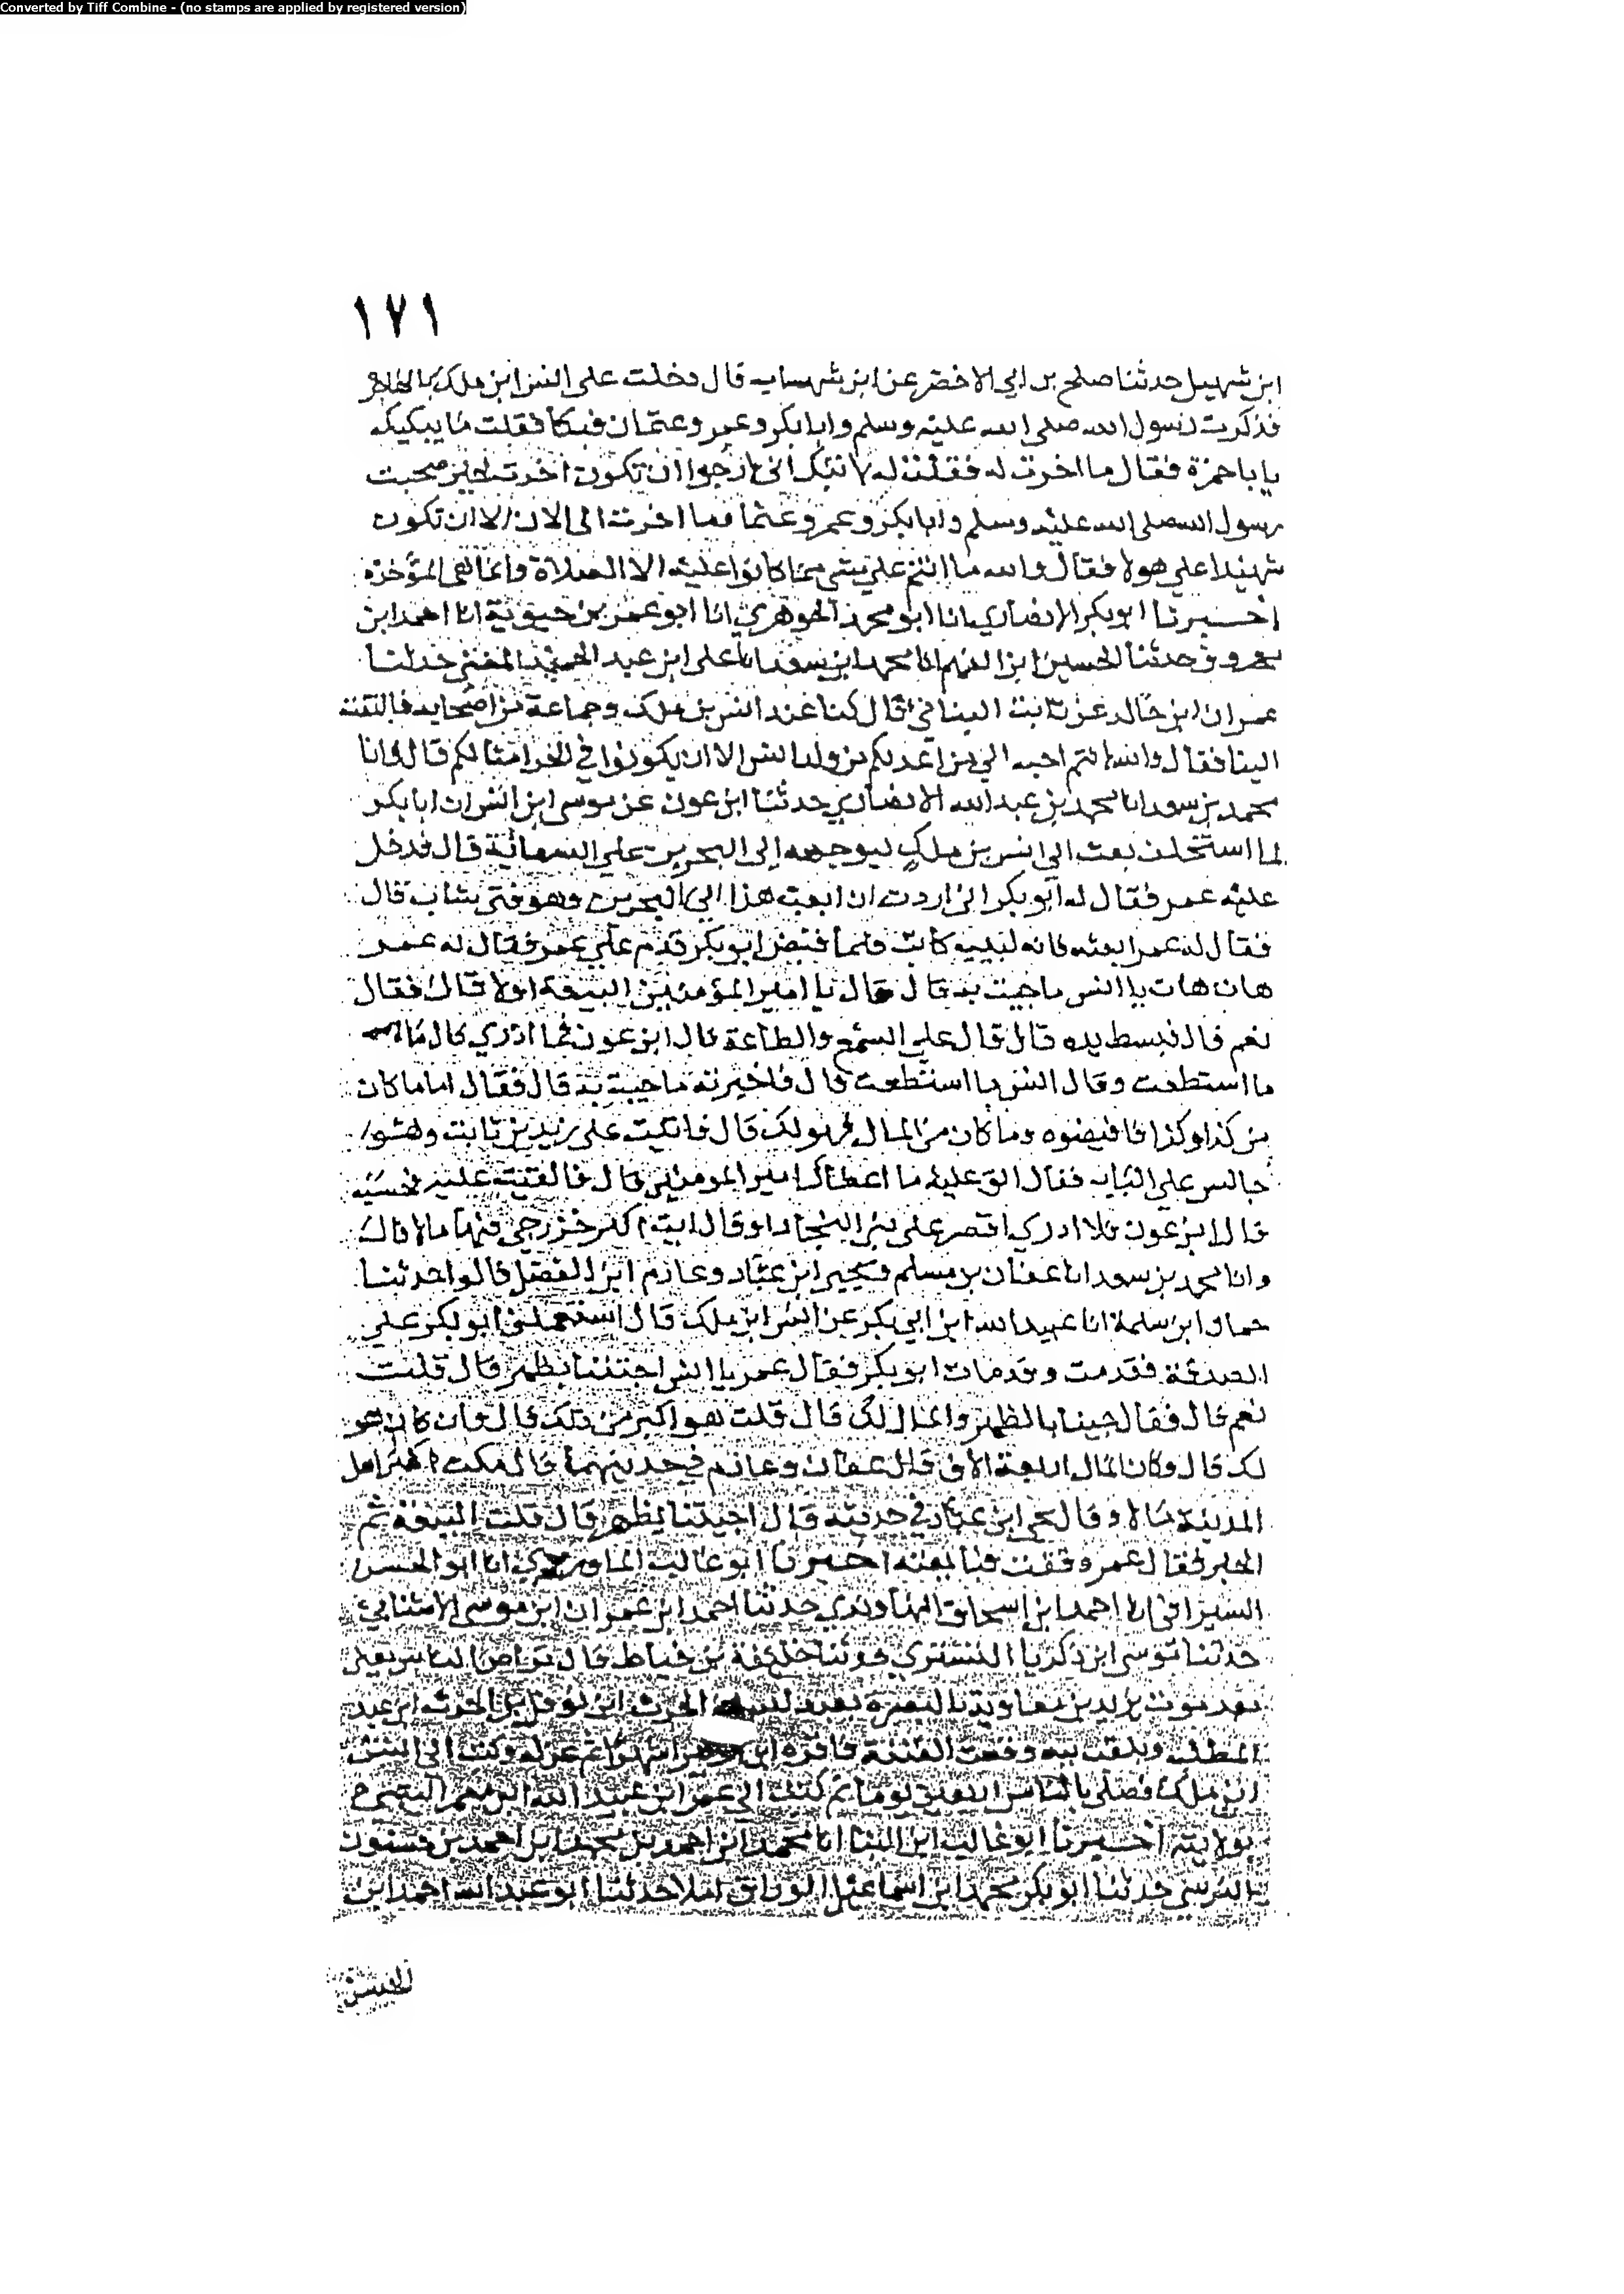 Converted by Tiff Combine - (no stamps are applied by registered version)
١٧١
ابن شهيل حدثنا صلح بن ابي الاخضر عن ابن شهاب قال دخلت على انس ابن ملك
فذكرت رسول الله صلى الله عليه وسلم وابا بكر وعمر وعثمان فبكا فقلت ما يبكيك
يا با حمزة فقال ما اخرت له فقلت له لا تبك اني ارجوا ان تكون اخرت لخير صحبت
رسول الله صلى الله عليه وسلم وابا بكر وعمر وعثما فما اخرت الى الان الا ان تكون
شهيدا على هولا فقال والله ما انتم على شي مما كانوا عليه الا الصلاة وانما لهي المؤخرة
اخبرنا ابو بكر الانصاري انا ابو محمد الجوهري انا ابو عمر بن حيوية انا احمد ابن
معروف حدثنا الحسين ابن الفهم انا محمد ابن سعد انا علي ابن عبد الحميد المعني حدثنا
عمران ابن خالد عن ثابت البناني قال كنا عند انس بن ملك وجماعة من اصحابه فالتفت
الينا فقال والله انتم احب الي من اعدلكم من ولد انس الا ان يكونوا في الخير امثالكم قال وانا
محمد بن سعد انا محمد بن عبد الله الانصاري حدثنا ابن عون عن موسى ابن انس ان ابا بكر
لما استخلف بعث الى انس بن ملك ليوجهه الى البحرين على السعاية قال فدخل
عليه عمر فقال له ابو بكر اني اردت ان ابعث هذا الى البحرين وهو فتى شاب قال
فقال له عمر ابعثه فانه لبيب كاتب فلما قبض ابو بكر قدم على عمر فقال له عمر
هات هات يا انس ما جيت به قال قال يا امير المؤمنين البيعة اولا قال فقال
نعم قال فبسط يده قال قال على السمع والطاعة قال ابن عون فما ادري قال
ما استطعت وقال انس ما استطعت قال فاخبرته ما جيت به قال فقال اما ما كان
من كذا وكذا فاقبضوه وما كان من المال فهو لك قال فاتيت على زيد بن ثابت وهو
جالس على الباب فقال الق عليه ما اعطاك امير المومنين قال فالقيت عليه فحسبه
قال ابن عون فلا ادري اقتصر على بني النجار او قال انت اكثر خزرجي فيها مالا قال
وانا محمد بن سعد انا عفان بن مسلم ويحيى ابن عباد وعارم ابن الفضل قالوا حدثنا
حماد ابن سلمة انا عبيد الله ابن ابي بكر عن انس ابن ملك قال استعملني ابو بكر على
الصدقة فقدمت وقد مات ابو بكر فقال عمر يا انس اجئتنا بظهر قال قلت
نعم قال فقال جينا بالظهر والمال لك قال قلت هو اكثر من ذلك قال وان كان هو
لك قال وكان المال اربعة الاف قال عفان وعارم في حديثهما قال فكنت اكثر اهل
المدينة مالا وقال يحيى ابن عباد في حديثه قال اجيتنا بظهر قال قلت البيعة ثم
الخبر فقال عمر وفقت فبايعته اخبرنا ابو غالب الماوردي انا ابو الحسن
السيرافي انا احمد ابن اسحاق النهاوندي حدثنا احمد ابن عمران ابن موسى الاشناني
حدثنا موسى ابن زكريا التستري حدثنا خليفة بن خياط قال تراضى الناس يعني
بعد موت يزيد بن معاوية بالبصرة بعبد الله الحرث ابن نوفل بن الحرث ابن عبد
المطلب ويلقب ببه وقعت الفتنة فاقره ابن اشهرا ثم عزله وكتب الى انس
ابن ملك فصلى بالناس اربعين يوما ثم كتب الى عمر ابن عبيد الله ابن معمر التيمي
بولايته اخبرنا ابو غالب ابن البنا انا محمد ابن احمد بن محمد بن احمد بن حسنون
النرسي حدثنا ابو بكر محمد ابن اسماعيل الوراق املا حدثنا ابو عبد الله احمد ابن